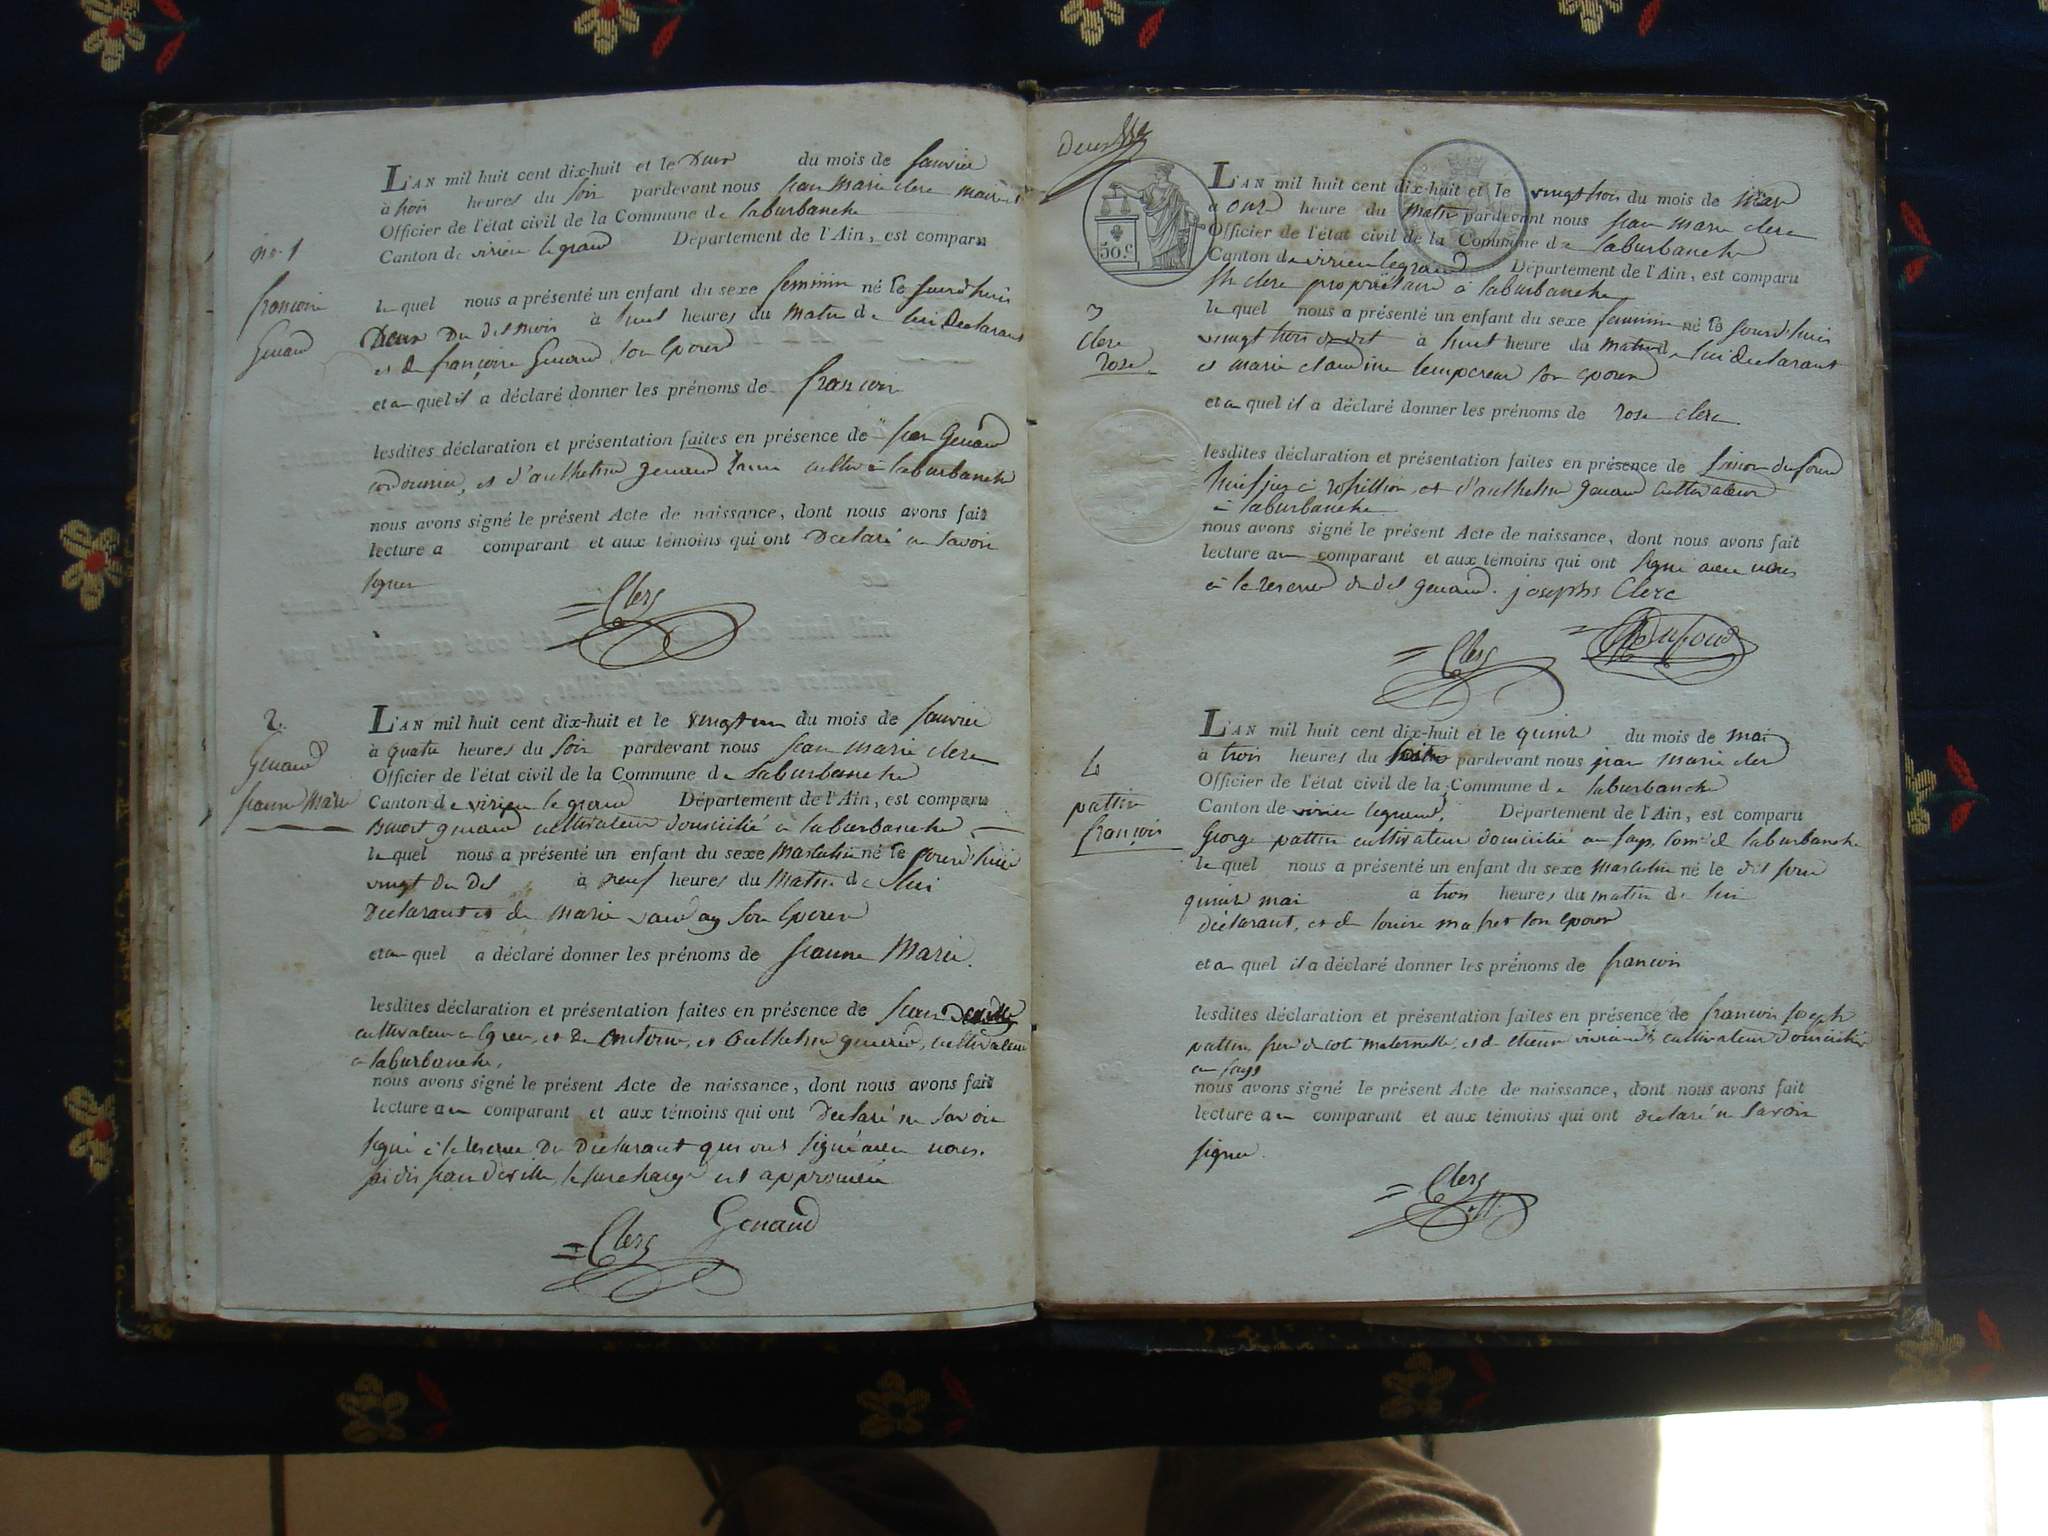 no. 1
françoise
Genaud
L'AN mil huit cent dix-huit et le Deux du mois de janvier
à trois heures du soir pardevant nous jean Marie clerc maire et
Officier de l'état civil de la Commune de laburbanche
Canton de virieu le grand Département de l'Ain, est comparu
le quel nous a présenté un enfant du sexe feminin né le jourd'huis
Deux du dit mois à huit heures du matin de lui Declarant
et de françoise Genaud son Epouse
et au quel il a déclaré donner les prénoms de françoise
lesdites déclaration et présentation faites en présence de jean Genaud
cordonier, et d'anthelme genaud cultiv à laburbanche
nous avons signé le présent Acte de naissance, dont nous avons fait
lecture a comparant et aux témoins qui ont Declaré ne savoir
signer
Clerc
2.
Genaud
jeanne Marie
L'AN mil huit cent dix-huit et le vingt un du mois de janvier
à quatre heures du soir pardevant nous jean marie clerc
Officier de l'état civil de la Commune de laburbanche
Canton de virieu le grand Département de l'Ain, est comparu
genaud cultivateur domicilié a laburbanche
le quel nous a présenté un enfant du sexe Masculin né le jourd'huis
vingt du dit à neuf heures du Matin de lui
Declarant et de Marie son Epouse
et au quel a déclaré donner les prénoms de jeanne Marie.
lesdites déclaration et présentation faites en présence de jean Deville
cultivateur a et de et Anthelme genaud, cultivateur
a laburbanche,
nous avons signé le présent Acte de naissance, dont nous avons fait
lecture au comparant et aux témoins qui ont Declaré ne savoir
signé à la reserve du Déclarant qui ont signé avec nous.
jai dis jean deville, la surcharge est approuvée
Genaud
Clerc
50.c
3
clerc
rose
L'AN mil huit cent dix-huit et le vingt trois du mois de mars
a onze heure du matin pardevant nous jean marie clerc
Officier de l'état civil de la Commune de laburbanche
Canton de virieu legrand Département de l'Ain, est comparu
jh clerc propriétaire à laburbanche
le quel nous a présenté un enfant du sexe feminin né le jourd'huis
vingt trois du dit à huit heure du matin de lui declarant
et marie claudine lempereur son epouse
et au quel il a déclaré donner les prénoms de rose clerc
lesdites déclaration et présentation faites en présence de simon dufour
huissier à rossillion, et d'anthelme genaud cultivateur
à laburbanche
nous avons signé le présent Acte de naissance, dont nous avons fait
lecture au comparant et aux témoins qui ont signé avec nous
à la reserve du dit genaud. josephs Clerc
Clerc
Dufour
4
pattin
françois
L'AN mil huit cent dix-huit et le quinze du mois de mai
à trois heures du pardevant nous jean marie clerc
Officier de l'état civil de la Commune de laburbanche
Canton de virieu legrand, Département de l'Ain, est comparu
George pattin cultivateur domicilié au fays, com. de laburbanche
le quel nous a présenté un enfant du sexe masculin né le dit jour
quinze mai à trois heures du matin de lui
déclarant, et de louise son Epouse
et au quel il a déclaré donner les prénoms de françois
lesdites déclaration et présentation faites en présence de françois joseph
pattin, frere de coté maternelle, et de etienne cultivateur domicilié
au fays
nous avons signé le présent Acte de naissance, dont nous avons fait
lecture au comparant et aux témoins qui ont declaré ne savoir
signer.
Clerc